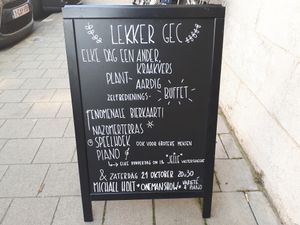 LEKKER GEC
ELKE DAG EEN ANDER,
KRAAKVERS
PLANT- AARDIG
ZELFBEDIENINGS- BUFFET
FENOMENALE BIERKAART!
NAZOMERTERRAS
SPEELHOEK OOK VOOR GROTERE MENSEN
PIANO &
→ ELKE DONDERDAG OM 18
& ZATERDAG 21 OKTOBER 20:30
MICHAEL HOLT * ONEMANSHOW * VARIETÉ & PIANO